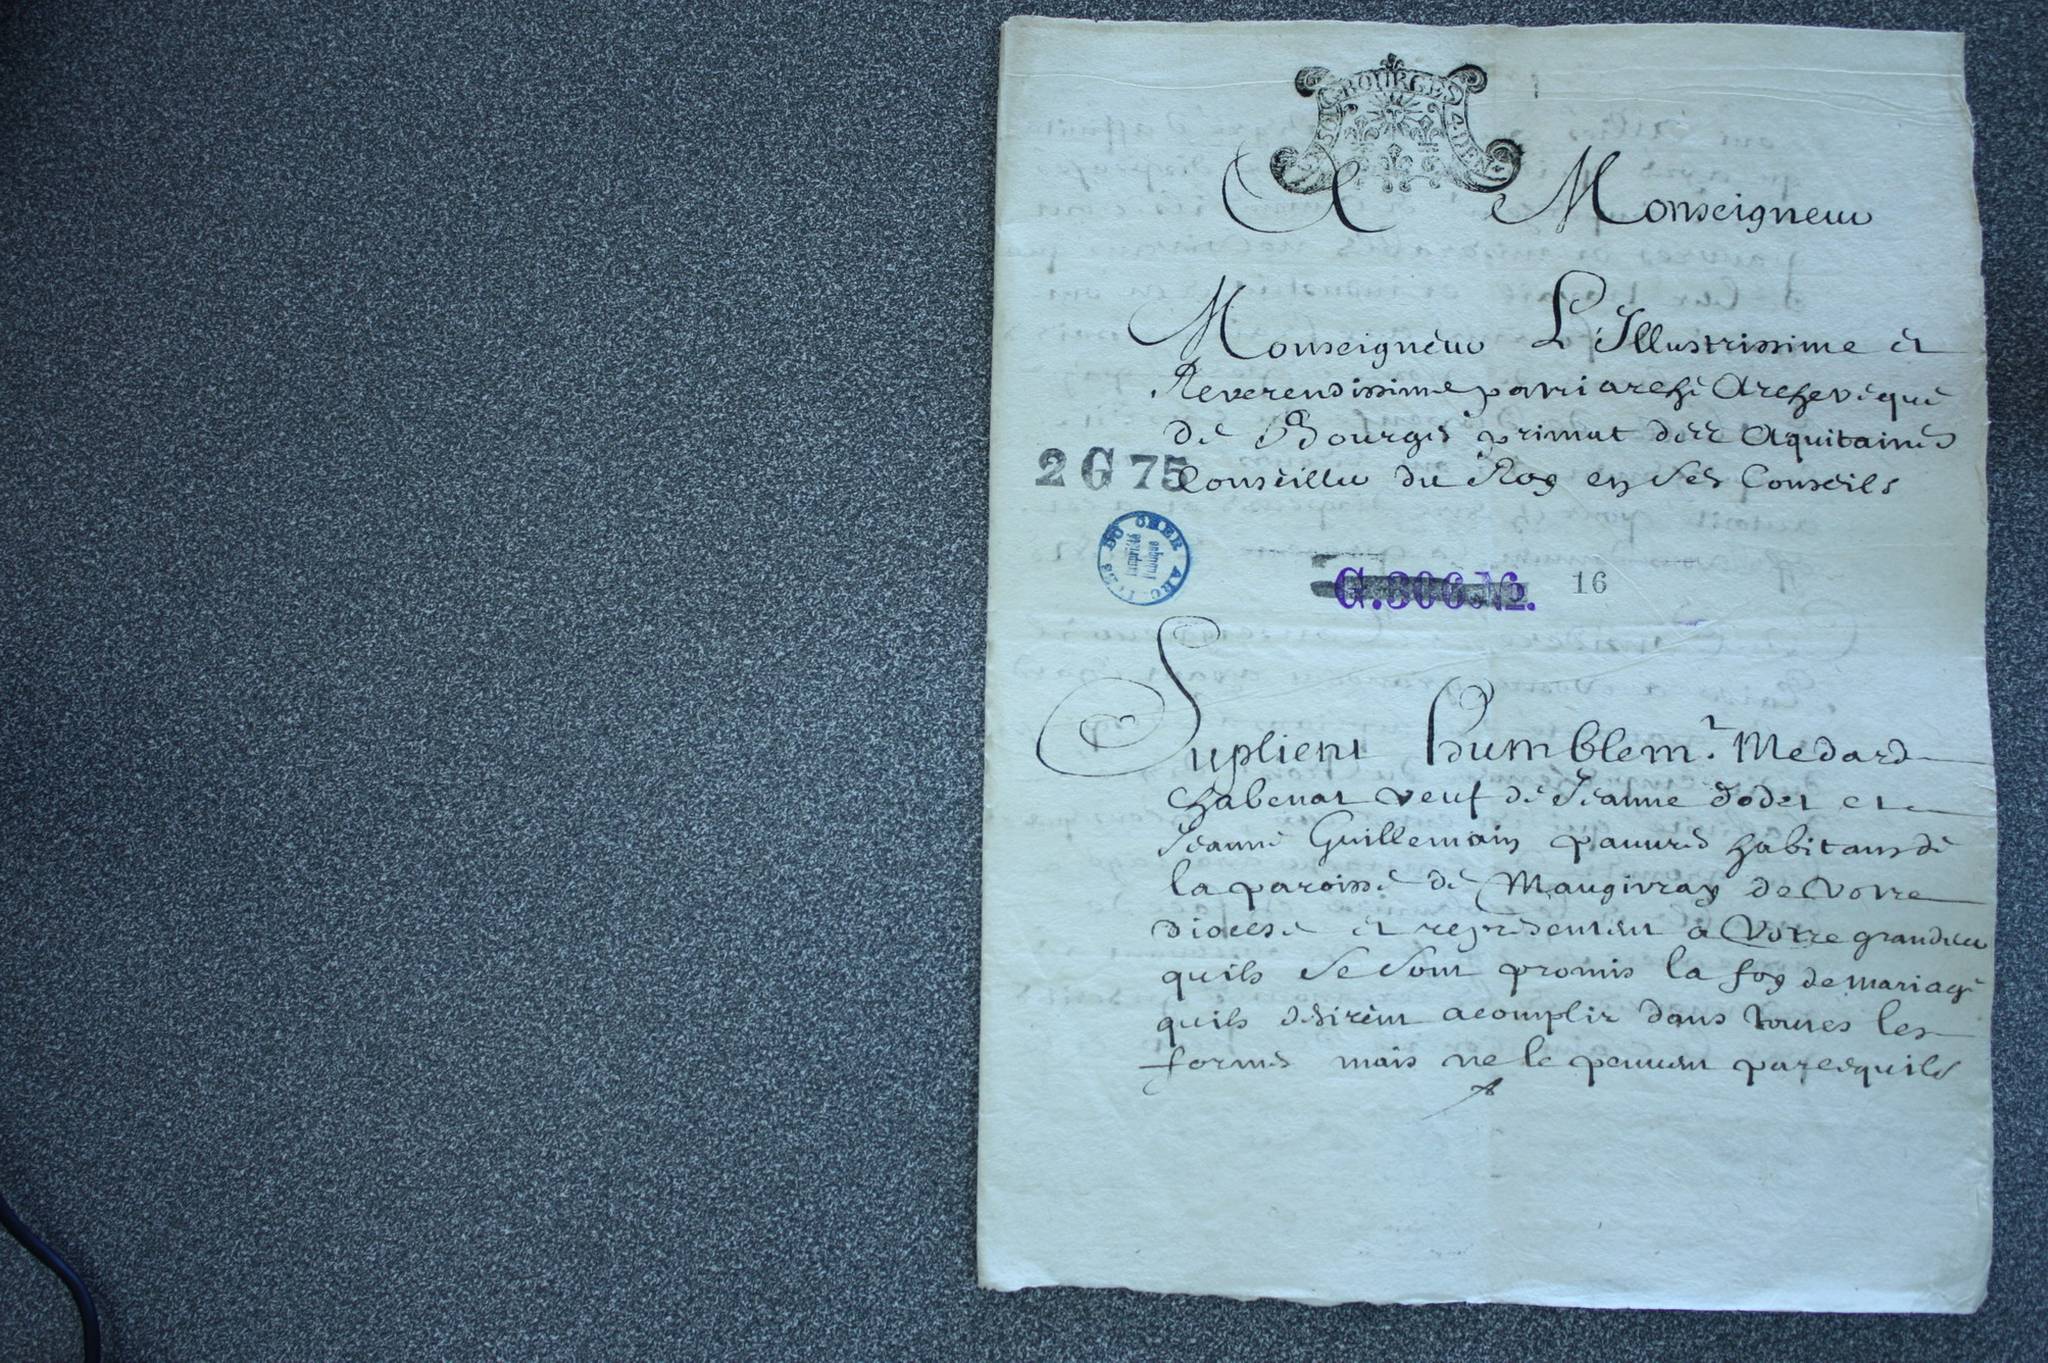 BOURGES
4 DEN
A Monseigneur
Monseigneur L'Illustrissime et
Reverendissime patriarche Archevêque
de Bourges primat des Aquitaines
2 G 75
Conseiller du Roy en ses Conseils
DU CHER ARC
G.306.
16
Suplient humblemt. Medard
habenat veuf de Jeanne Jodet et
Jeanne Guillemain pauvres habitans de
la paroisse de Maugivray de votre
diocese et representent a Votre grandeur
quils se sont promis la foy de mariage
quils desirent acomplir dans toutes les
formes mais ne le peuvent parcequils